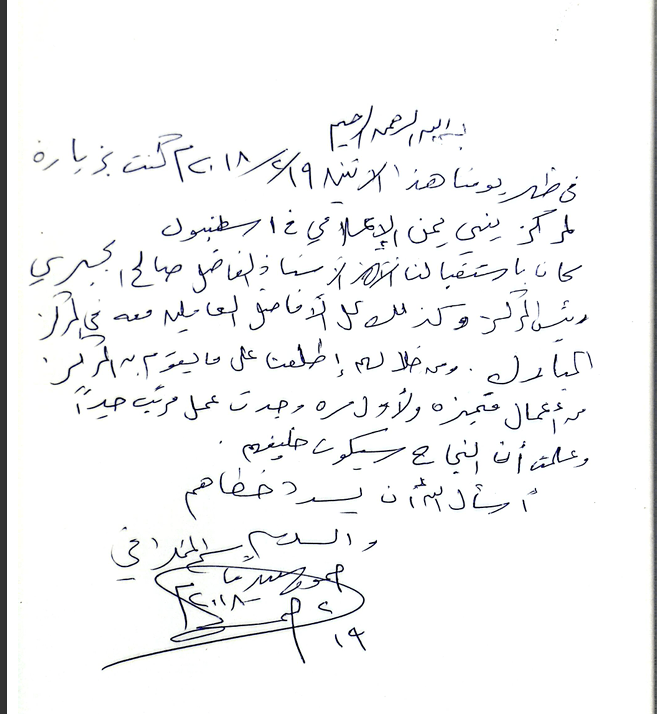 بسم الله الرحمن الرحيم
في ظهر يومنا هذا الاثنين ٢/١٩/٢٠١٨م كنت بزيارة
لمركز يني يمن الإعلامي في اسطنبول
كان باستقبالنا الأستاذ الفاضل صالح الجبري
رئيس المركز وكذلك كل الأفاضل العاملين معه في المركز
المبارك . ومن خلالهم إطلعت على ما يقوم به المركز
من أعمال متميزه ولأول مره وجدت عمل مرتب جيداً
وعلمت أن النجاح سيكون حليفهم .
أسأل الله أن يسدد خطاهم
والسلام
٢٠١٨م
٢
١٩